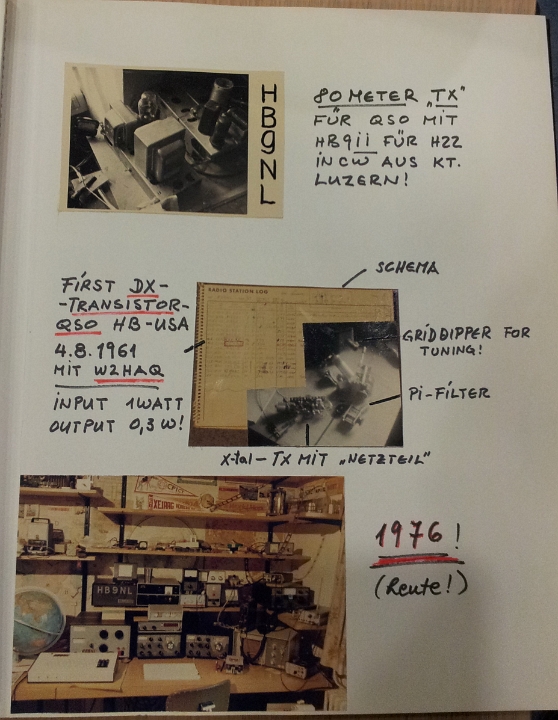 HB9NL
80 METER „TX"
FÜR QSO MIT
HB9ii FÜR H22
iN CW AUS KT.
LUZERN!
FiRST DX-
-TRANSiSTOR-
QSO HB-USA
4.8.1961
MiT W2HAQ
iNPUT 1WATT
OUTPUT 0,3 W!
SCHEMA
RADIO STATION LOG
GRiDDiPPER FOR
TUNiNG!
Pi-FiLTER
X-tal-TX MiT „NETZTEiL"
HB9NL
1976!
(heute!)